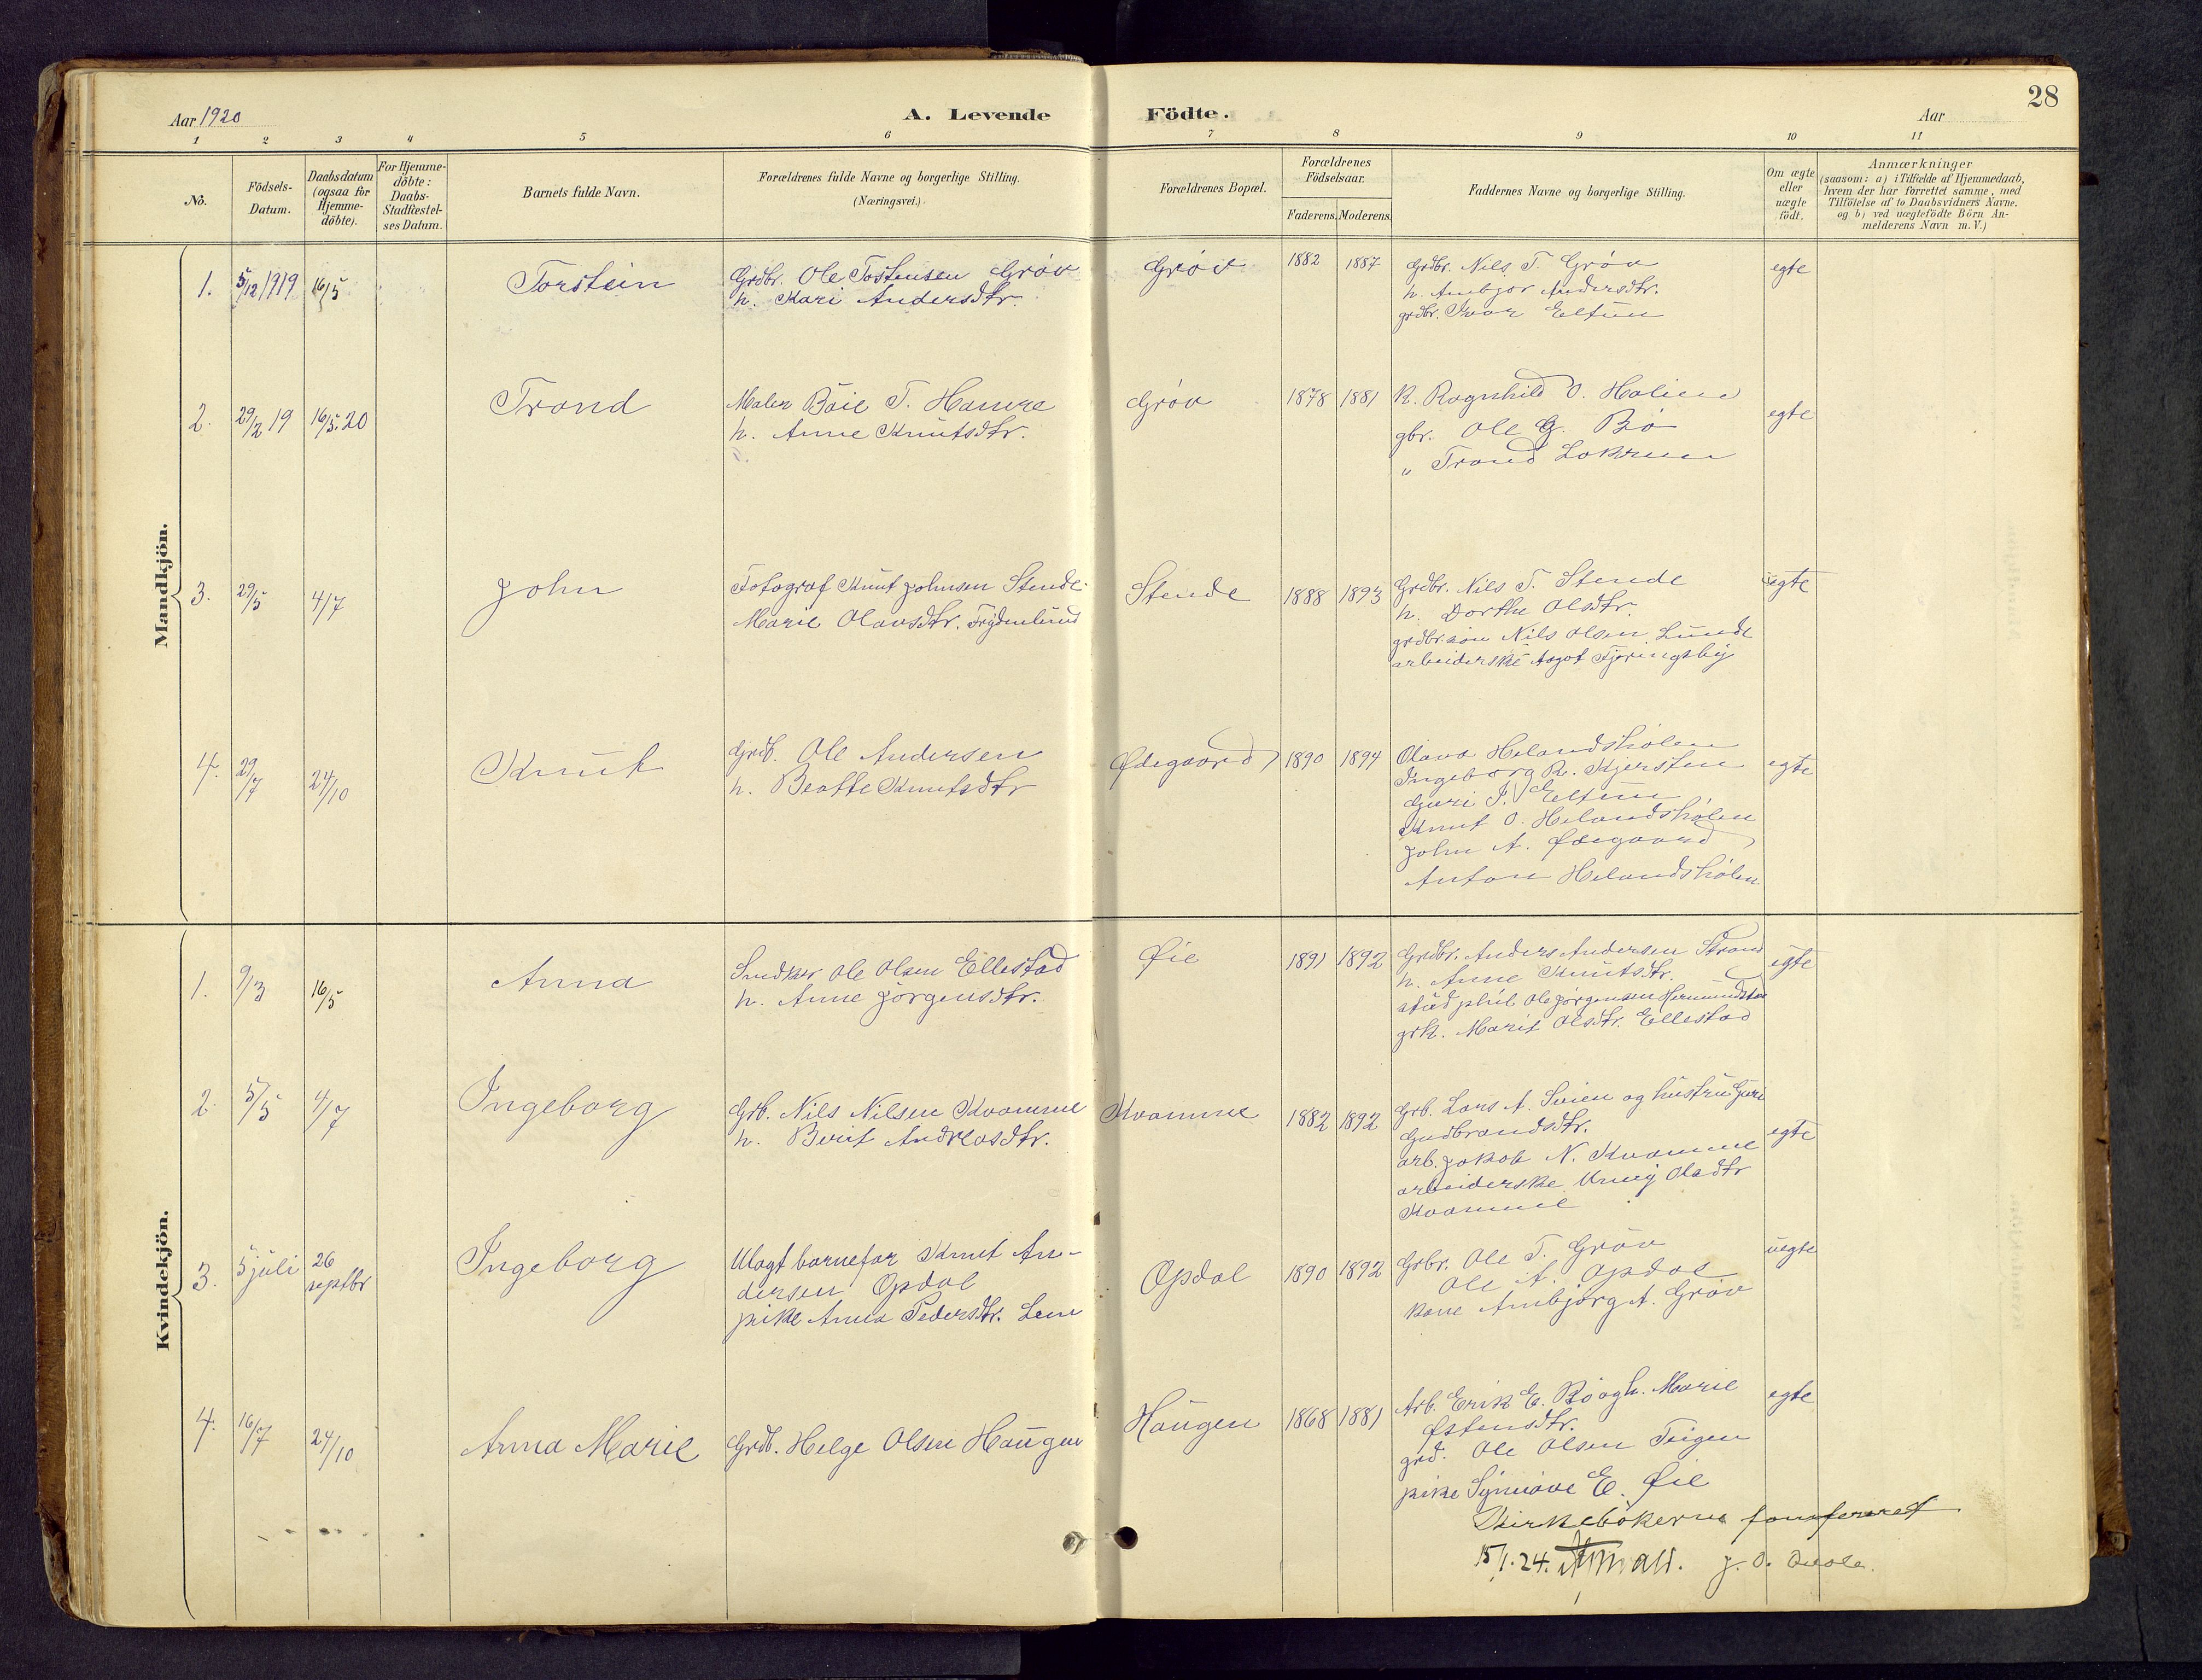 28
Aar 1920
A. Levende Födte.
Aar
1 2 3 4 5 6 7 8 9 10 11
No.
Födsels-
Datum.
Daabsdatum
(ogsaa for
Hjemme-
döbte).
For Hjemme-
döbte:
Daabs-
Stadfæstel-
ses Datum.
Barnets fulde Navn.
Forældrenes fulde Navne og borgerlige Stilling.
(Næringsvei.)
Forældrenes Bopæl.
Forældrenes
Födselsaar.
Faderens. Moderens.
Faddernes Navne og borgerlige Stilling.
Om ægte
eller
uægte
födt.
Anmærkninger
(saasom: a) i Tilfælde af Hjemmedaab,
hvem der har forrettet samme, med
Tilföielse af to Daabsvidners Navne.
og b) ved uægtefödte Börn An-
melderens Navn m. V.)
Mandkjön.
1. 5/12 1919 16/5
Torstein
Grdbr. Ole Tostensen Grøv
h. Kari Andersdtr.
Grøv
1882 1887
Grdbr. Nils T. Grøv
h. Ambjør Andersdtr.
grdbr. Ivar Eltun
egte
2. 29/2 19 16/5.20
Trond
Maler Boie T. Hamre
h. Anne Knutsdtr.
Grøv
1878 1881
K. Ragnhild O.
gbr. Ole G. Bø
" Trond Lokrum
egte
3. 29/5 4/7
John
Fotograf Knut Johnsen Stende
Marie Olavsdtr. Frydenlund
Stende
1888 1893
Grdbr. Nils T. Stende
h. Dorthe Olsdtr.
grdbr.søn Nils Olsen Lunde
arbeiderske Asgot
egte
4. 29/7 24/10
Knut
Grdb. Ole Andersen
h. Beatte Knutsdtr
Ødegaard
1890 1894
Olava Helandshølen
Ingeborg K. Kjersten
Guri I. Eltun
Knut O. Helandshølen
John A. Ødegaard
Anton Helandshølen
egte
Kvindekjön.
1. 9/3 16/5
Anna
Snedker Ole Olsen Ellestad
h. Anne Jørgensdtr.
Øie
1891 1892
Grdbr. Anders Andersen Strand
h. Anne Knutsdtr.
stud. phil Ole Jørgensen Hermundstad
grk. Marit Olsdtr. Ellestad
egte
2. 5/5 4/7
Ingeborg
Grb. Nils Nilsen Kvamme
h. Berit Andreasdtr.
Kvamme
1882 1892
Grb. Lars A. Svien og hustru Guri
Gudbrandsdtr.
arb. Jakob N. Kvamme
arbeiderske Unny Olsdtr
Kvamme
egte
3. 5 juli 26
septbr
Ingeborg
Ulagt barnefar Knut An-
dersen Opdal
pike Anna Pedersdtr. Lem
Opdal
1890 1892
Grbr. Ole T. Grøv
Ole A. Opdal
kone Ambjørg A. Grøv
uegte
4. 16/7 24/10
Anna Marie
Grdb. Helge Olsen Haugen
Haugen
1868 1881
Arb. Erik E. Bø og h. Marie
Østensdtr.
grd. Ole Olsen Teigen
pike Synnøve E. Øie
egte
Kirkebøkerne konfereret
15/1.24.